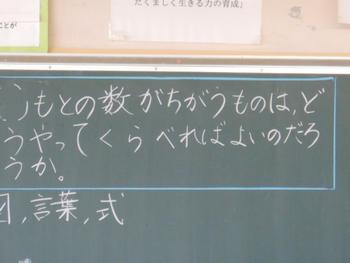 ことが
たくましく生きる力の育成」
もとの数がちがうものは、ど
うやってくらべればよいのだろ
うか。
図,言葉,式